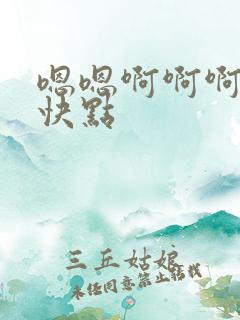 嗯嗯啊啊啊
快點
三丘姑娘
未经同意禁止转载